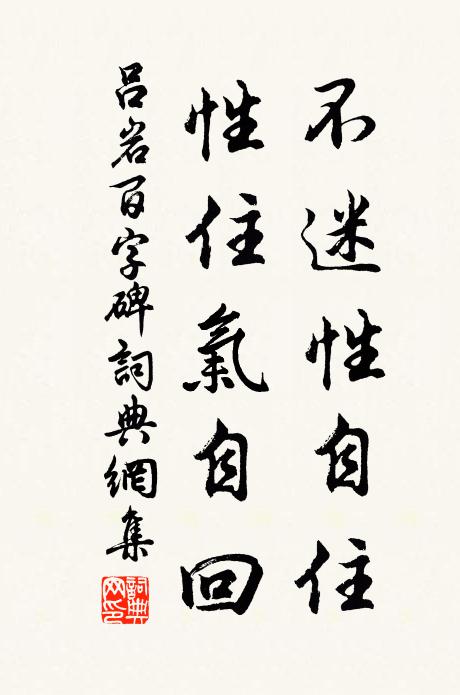 不迷性自住
性住氣自回
吕岩百字碑詞典網集
詞典網印